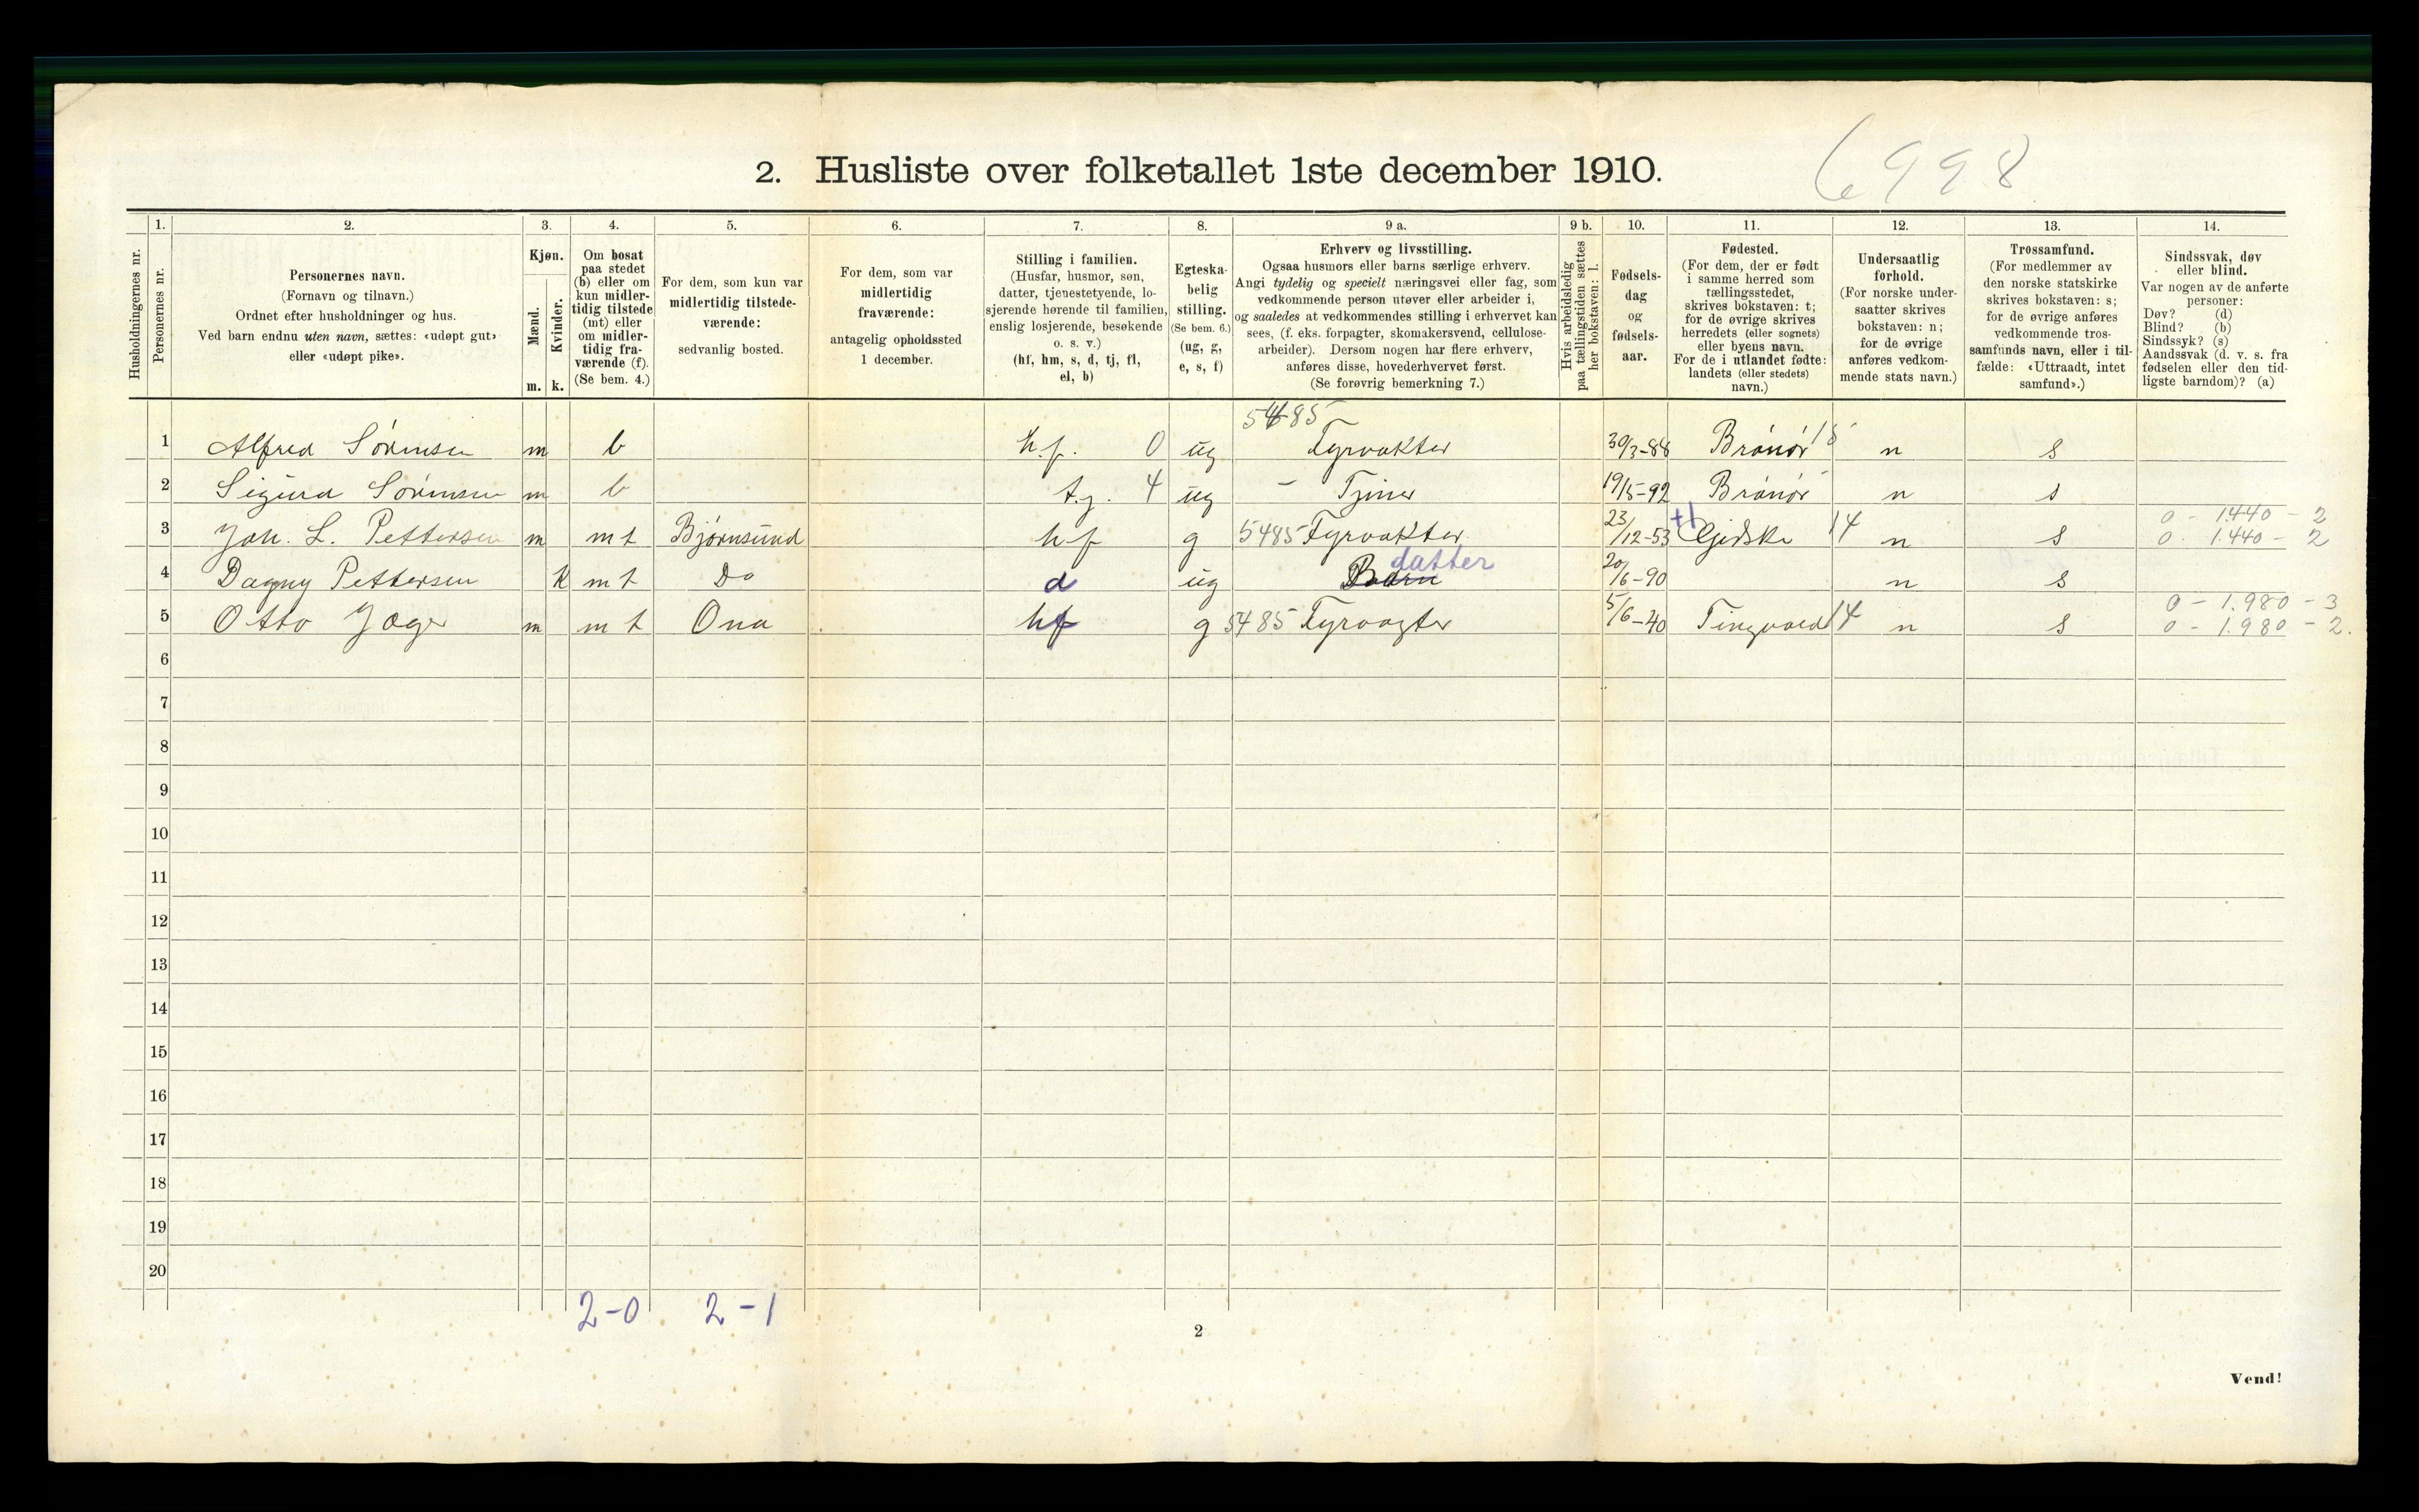 2. Husliste over folketallet 1ste december 1910.
6998
Husholdningernes nr.
1. Personernes nr.
2. Personernes navn.
(Fornavn og tilnavn.)
Ordnet efter husholdninger og hus.
Ved barn endnu uten navn, sættes: «udøpt gut»
eller «udøpt pike».
3. Kjøn.
Mænd. Kvinder.
m. k.
4. Om bosat
paa stedet
(b) eller om
kun midler-
tidig tilstede
(mt) eller
om midler-
tidig fra-
værende (f).
(Se bem. 4.)
5. For dem, som kun var
midlertidig tilstede-
værende:
sedvanlig bosted.
6. For dem, som var
midlertidig
fraværende:
antagelig opholdssted
1 december.
7. Stilling i familien.
(Husfar, husmor, søn,
datter, tjenestetyende, lo-
sjerende hørende til familien,
enslig losjerende, besøkende
o. s. v.)
(hf, hm, s, d, tj, fl,
el, b)
8. Egteska-
belig
stilling.
(Se bem. 6.)
(ug, g,
e, s, f)
9 a. Erhverv og livsstilling.
Ogsaa husmors eller barns særlige erhverv.
Angi tydelig og specielt næringsvei eller fag, som
vedkommende person utøver eller arbeider i,
og saaledes at vedkommendes stilling i erhvervet kan
sees, (f. eks. forpagter, skomakersvend, cellulose-
arbeider). Dersom nogen har flere erhverv,
anføres disse, hovederhvervet først.
(Se forøvrig bemerkning 7.)
9 b. Hvis arbeidsledig
paa tællingstiden sættes
her bokstaven: l.
10. Fødsels-
dag
og
fødsels-
aar.
11. Fødested.
(For dem, der er født
i samme herred som
tællingsstedet,
skrives bokstaven: t;
for de øvrige skrives
herredets (eller sognets)
eller byens navn.
For de i utlandet fødte:
landets (eller stedets)
navn.)
12. Undersaatlig
forhold.
(For norske under-
saatter skrives
bokstaven: n;
for de øvrige
anføres vedkom-
mende stats navn.)
13. Trossamfund.
(For medlemmer av
den norske statskirke
skrives bokstaven: s;
for de øvrige anføres
vedkommende tros-
samfunds navn, eller i til-
fælde: «Uttraadt, intet
samfund».)
14. Sindssvak, døv
eller blind.
Var nogen av de anførte
personer:
Døv? (d)
Blind? (b)
Sindssyk? (s)
Aandssvak (d. v. s. fra
fødselen eller den tid-
ligste barndom)? (a)
5485
1 Alfred Sørensen m b h.f. 0 ug Fyrvakter 30/3-88 Brønø 18 n s
2 Sigurd Sørensen m b t.j. 4 ug - Tjener 19/5-92 Brønø n s
0 - 1440 - 2
3 Joh. L. Pettersen m mt Bjørnsund hf g 5485 Fyrvakter 23/12-53 +1 Gjidske 14 n s 0 - 1.440 - 2
4 Dagny Pettersen k mt Do d ug Barn datter 20/6-90 n s
0 - 1.980 - 3
5 Otto Jæger m mt Ona hf g 5485 Fyrvagter 5/6-40 Tingvold 14 n s 0 - 1.980 - 2.
6
7
8
9
10
11
12
13
14
15
16
17
18
19
20
2-0 2-1
2
Vend!